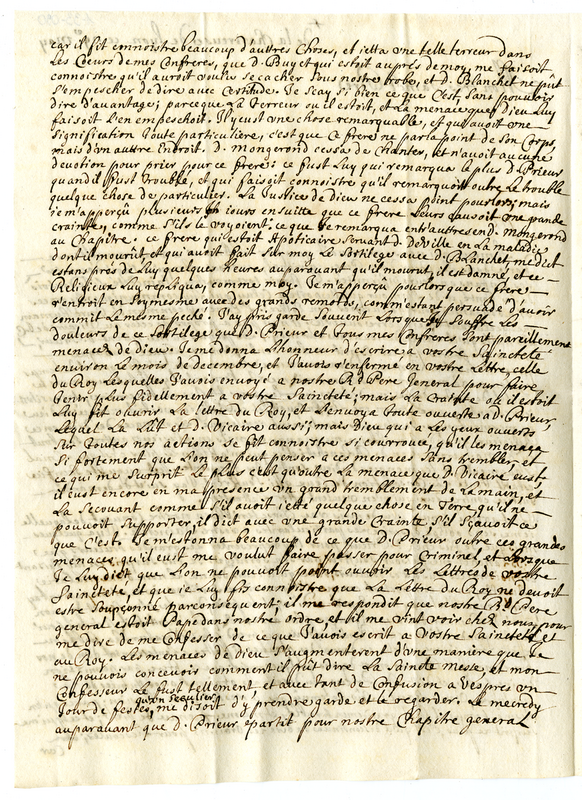 car il fit connoistre beaucoup d'autres choses, et ietta une telle terreur dans
Les Coeurs de mes Confreres, que D. Buy et qui estoit aupres de moy, me faisoit
connoistre qu'il auroit voulu se cacher sous nostre robe, et D. Blanchet ne pût
s'empescher de dire avec Certitude. Je scay si bien ce que C'est, sans pouvoir
dire d'avantage; parceque La terreur ou il estoit, et La menace que Dieu Luy
faisoit L'en empeschoit. Il y eust une chose remarquable, et qui avoit une
signification toute particuliere, c'est que Ce frere ne parla point de son Corps,
mais d'un auttre Endroit. D. mongerond cessa de chanter, et n'avoit aucune
devotion pour prier pour ce frere: ce fust Luy qui remarqua le plus D. Prieur
quand il fust trouble, et qui faisoit connoistre qu'il remarquoit outre Le trouble
quelque chose de particulier. La Justice de dieu ne cessa point pour lors; mais
ie m'apperçu plusieurs iours ensuitte que ce frere Leurs causoit une grande
crainte, comme s'ils le voyoient; ce que Je remarqua ent'auttres en D. mongerond
au Chapitre. ce frere qui estoit Apoticaire servant D. DeVille en La maladie
dont il mourut et qui avoit fait sur moy Le sortilege avec D. Blanchet, me dict
estans prés de Luy quelques heures auparavant qu'il mourut, il est damné, et ce
Religieux Luy repliqua, comme moy. Je m'apperçu pour lors que ce frere
r'entroit en soy mesme avec des grands remords, comm'estant persuadé d'avoir
commit Le mesme peché. J'ay pris garde souvent Lorsque Je souffre Les
douleurs de ce sortilege que D. Prieur et tous mes Confreres sont pareillement
menacez de dieu. Je me donna L'honneur d'escrire a vostre Saincteté
environ Le mois de decembre, et J'avois r'enfermé en vostre Lettre, celle
du Roy Lesquelles J'avois envoyé a nostre Rd Pere General pour faire
tenir plus fidellement a vostre Saincteté; mais La Crainte ou il estoit
Luy fit ouvrir La Lettre du Roy, et L'envoya toute ouverte a D. Prieur,
Lequel La Lut et D. Vicaire aussi; mais Dieu qui a Les yeux ouverts
sur toutes nos actions se fit connoistre si courroucé, qu'il les menaça
si fortement que L'on ne peut penser a ces menaces sans trembler, et
ce qui me surprit Le plus c'est qu'outre La menace que D. Vicaire eust,
il eust encore en ma presence un grand tremblement de La main, et
La secouant comme s'il avoit ietté quelque chose en Terre qu'il ne
pouvoit supporter, il dict avec une grande Crainte, s'il sçavoit ce
que C'est. Je m'estonna beaucoup de ce que D. Prieur outre ces grandes
menaces, qu'il eust me voulut faire passer pour Criminel, et Lorsque
Je Luy dict que L'on ne pouvoit point ouvrir Les Lettres de vostre
Saincteté, et que ie Luy fis connoistre que La Lettre du Roy ne devoit
estre soupçonné par consequent; il me respondit que nostre Rd Pere
general estoit Pape dans nostre ordre, et il me vint voir chez nous pour
me dire de me Confesser de ce que J'avois escrit a Vostre Saincteté et
au Roy. Les menaces de dieu s'augmenterent d'une maniere que Je
ne pouvois concevoir comment il pût dire La Sainte messe, et mon
Confesseur Le fust tellement, et avec tant de Confusion a Vespres un
Jour de festes, qu'un seculier me disoit d'y prendre garde et Le regarder. Le mecredy
auparavant que D. Prieur partit pour nostre Chapitre general